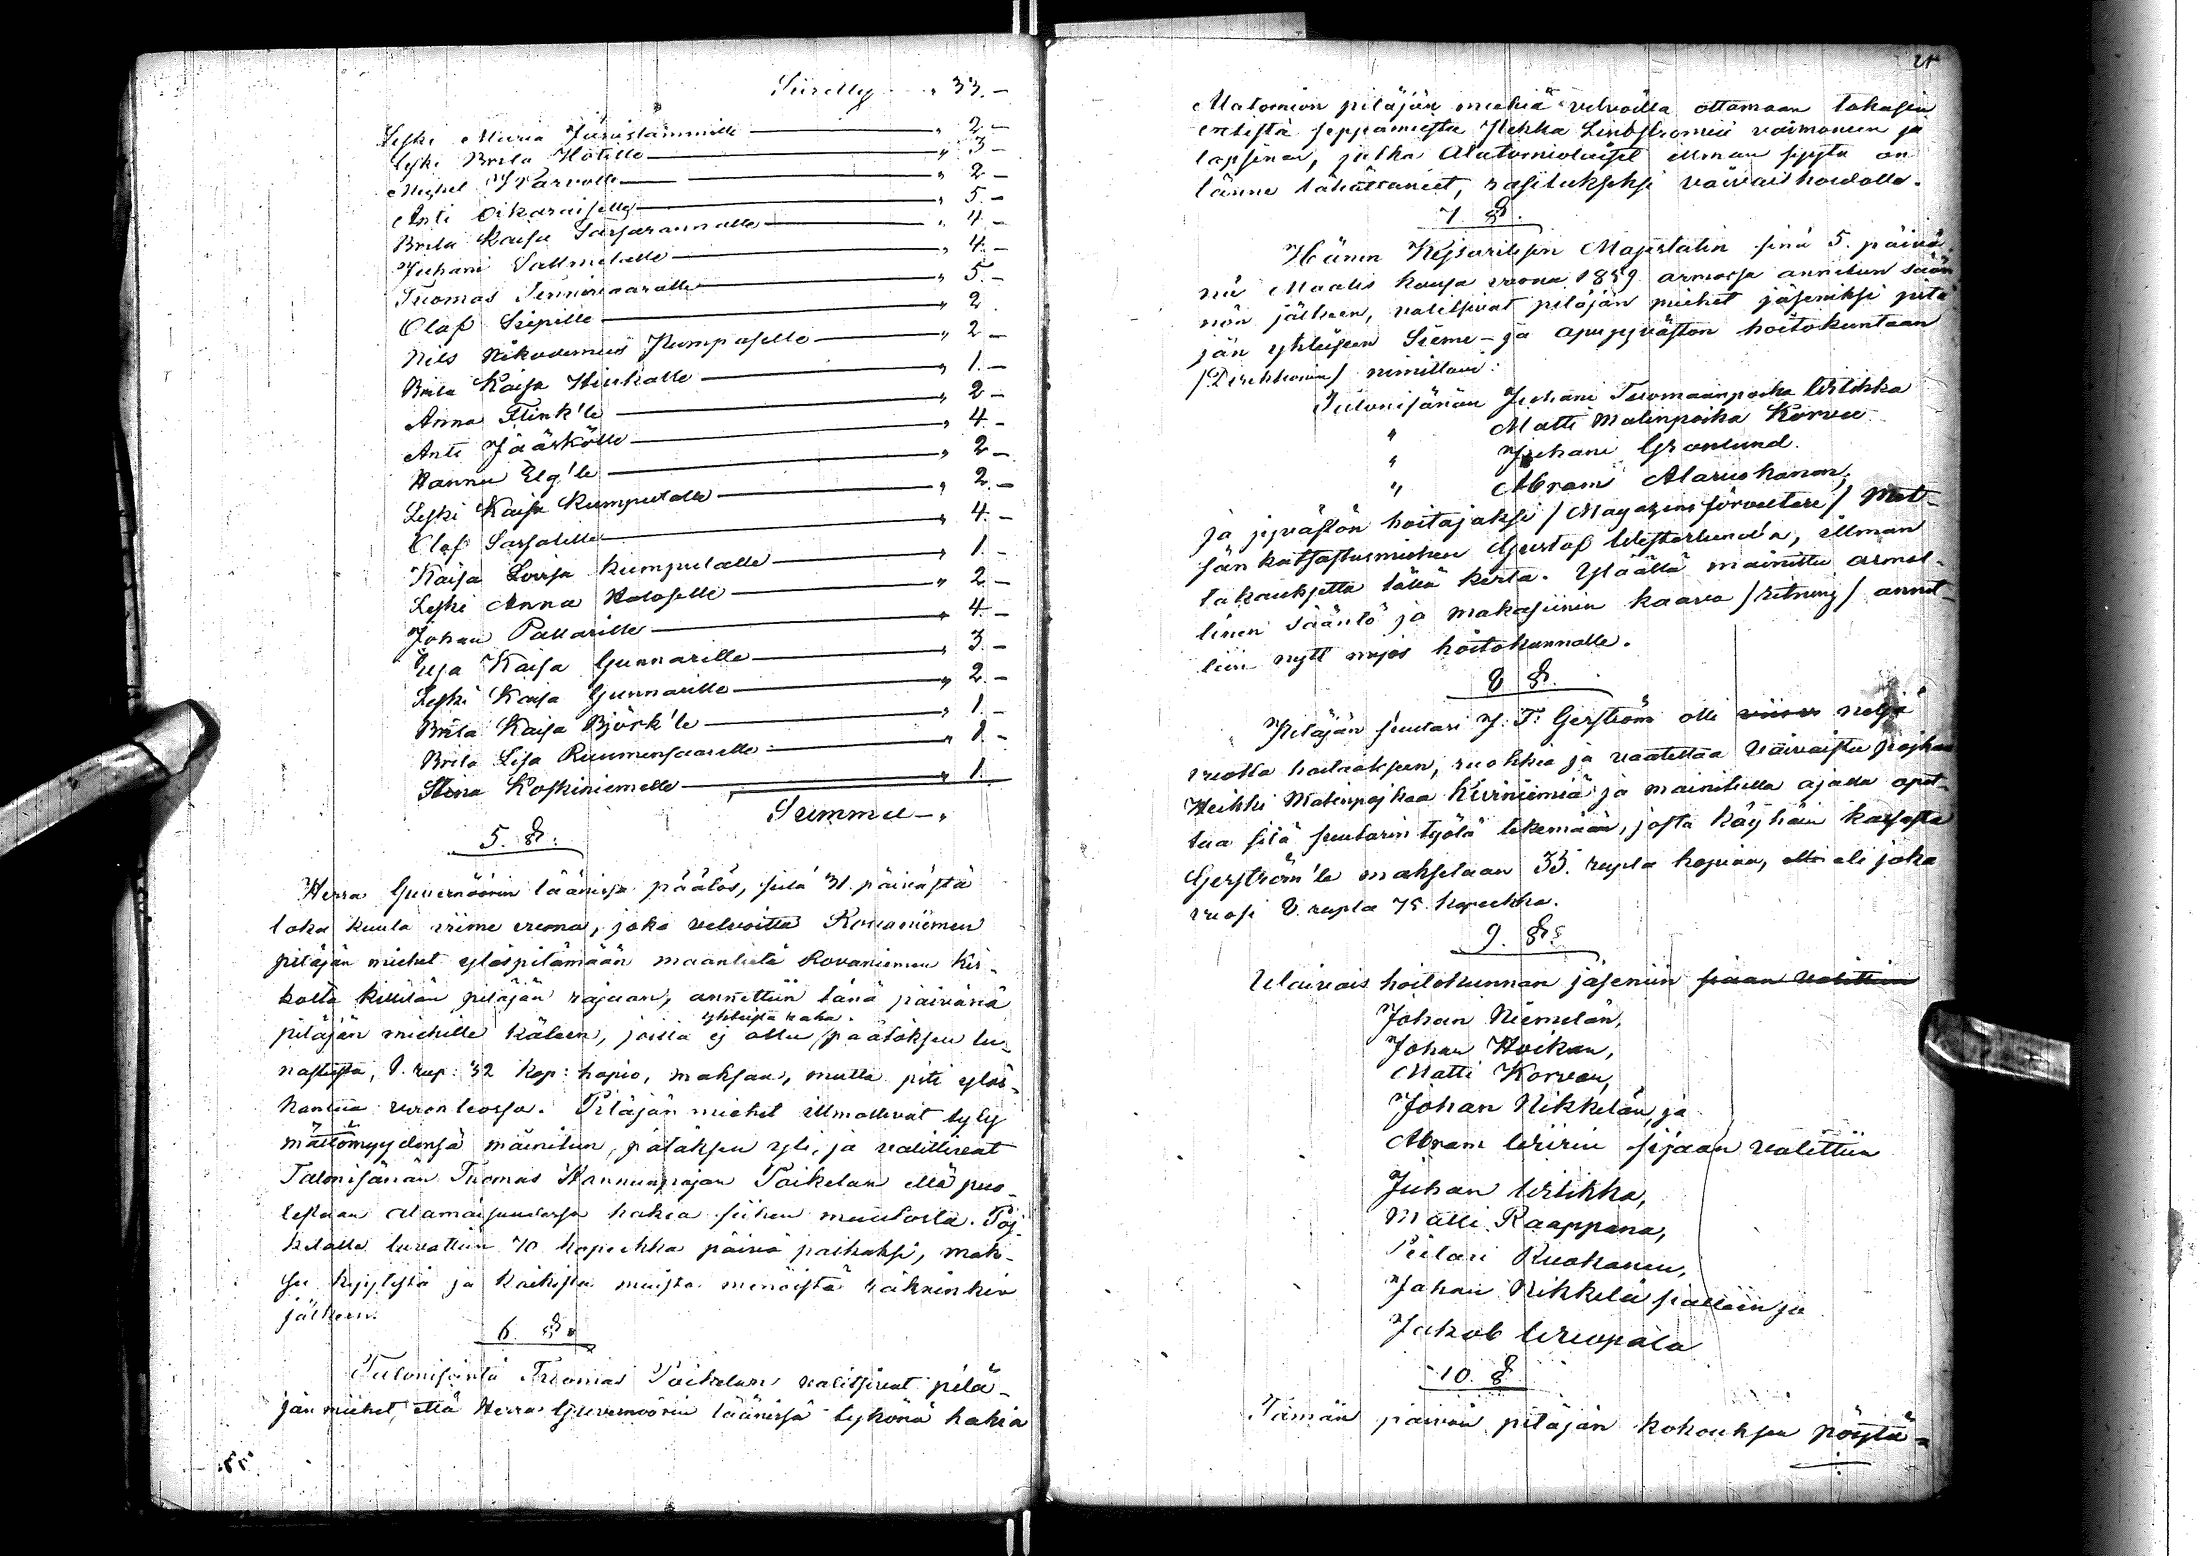 Siiretty " 33.-
Leski Maria Juuistammille " 2.-
Leski Brita Hötille " 3-
Michel Warvolle " 2-
Anti Oikaraiselle " 5.-
Brita Kaisa Sarsarannalle " 4.-
Juhani Vallmetalle " 4.-
Tuomas Tenniwaaralle " 5.-
Olaf Siepille " 2
Nils Nikodemus Kumpaselle " 2-
Brita Kaisa Hiukalle " 1.-
Anna Flink'le " 2-
Anti Jääskölle " 4.-
Hannu Elg'le " 2-
Leski Kaisa Kumpulalle " 2.-
Olaf Sarsalille " 4.-
Kaisa Lovisa Kumpulalle " 1.-
Leski Anna Kaloselle " 2-
Johan Pallarille " 4-
Eeja Kaisa Gunnarille " 3.-
Leski Kaisa Gunnarille " 2.-
Brita Kaisa Björk'le " 1.-
Brita Lisa Ruumensaarelle " 1.-
Stina Koskiniemelle " 1.
Summa - "
5. §.
Herra Guvernöörin läänissä päätös, siitä 31. päivästä
loka kuuta viime vuona, joka velvoitta Rovaniemen
pitäjän miehet ylöspitämään maantietä Rovaniemen kir-
kolta Kittilän pitäjän rajaan, annettiin tänä päivänä
pitäjän miehille käteen, joilla ej ollu yhteistä raha päätöksen lu-
nastusta, 1. rup: 32 kop: hopio, maksaa, mutta piti ylös-
kantaa veron teossa. Pitäjän miehet illmottivat tyty
mättömyydensä mainitun pätöksen yli, ja valittivat
Talonisänän Tuomas Hannunpojan Poikelan että puo-
lestaan alamaisuudessa hakea siihen muutosta. Poj
kelalle luvattiin 70 kopeekka päivä palkaksi, mak-
su kyytistä ja kaikista muista menoista räkninkin
jälkeen.
6. §.
Talonisäntä Tuomas Poikelan valitsivat pitä-
jän miehet, että Herra Guvernöörin läänissä tykönä hakia
21
Alatornion pitäjän miehiä velvoilla ottamaan takasin
entistä seppämiestä Pekka Lindströmiä vaimoneen ja
lapsineen, jotka Alatornioluiset illman syytä on
tänne lähättäneet, rasitukseksi vaivaishoidolla.
7. §.
Hänen Kejsarilisen Majestätin sinä 5. päivä-
nä Maalis kuusa vuona 1859 armossa annetun sään
nön jälkeen, valitsivat pitäjän miehet jäseniksi pitä
jän yhteiseen Sieme- ja apujyvästön hoitokuntaan
/Direktionin/ nimittäin:
Talonisänän Juhani Tuomaanpoika Wilikka
" Matti Matinpoika Korva
" Juhani Granlund.
" Abrami Alaruokanan,
ja jyvästön hoitajaksi /Magazins förvaltare/ Met-
sän katsastusmiehen Gustaf Westerlund'n, illman
takauksetta tällä kerta. Yläällä mainittu armol-
linen sääntö ja makasiinin kaava /ritning/ annet-
tiin nytt myös hoitokunnalle.
8 §.
Pitäjän suutari J. F. Gerström olli viisi neljä
vuotta hoitaakseen, ruokkia ja vaatettaa vaivaista pojkaa
Heikki Matinpojkaa Kurniemiä ja mainitulla ajalla opet-
taa sitä suutarin työtä tekemään, josta käyhäin kassasta
Gerström'le maksetaan 35. rupla hopiaa, eli joka
vuosi 8. rupla 75. kopeekka.
9. §.
Waivais hoitokunnan jäseniin siaan valittiin
Johan Niemelän,
Johan Hoikan,
Matti Korvan,
Johan Nikkelän, ja
Abram Wiirin sijaan valittiin
Juhan Wilikka,
Matti Raappana,
Pietari Ruokanen,
Johan Nikkelä ja
Jakob Wuopala
10. §
Tämän päivän pitäjän kokouksen pöytä-